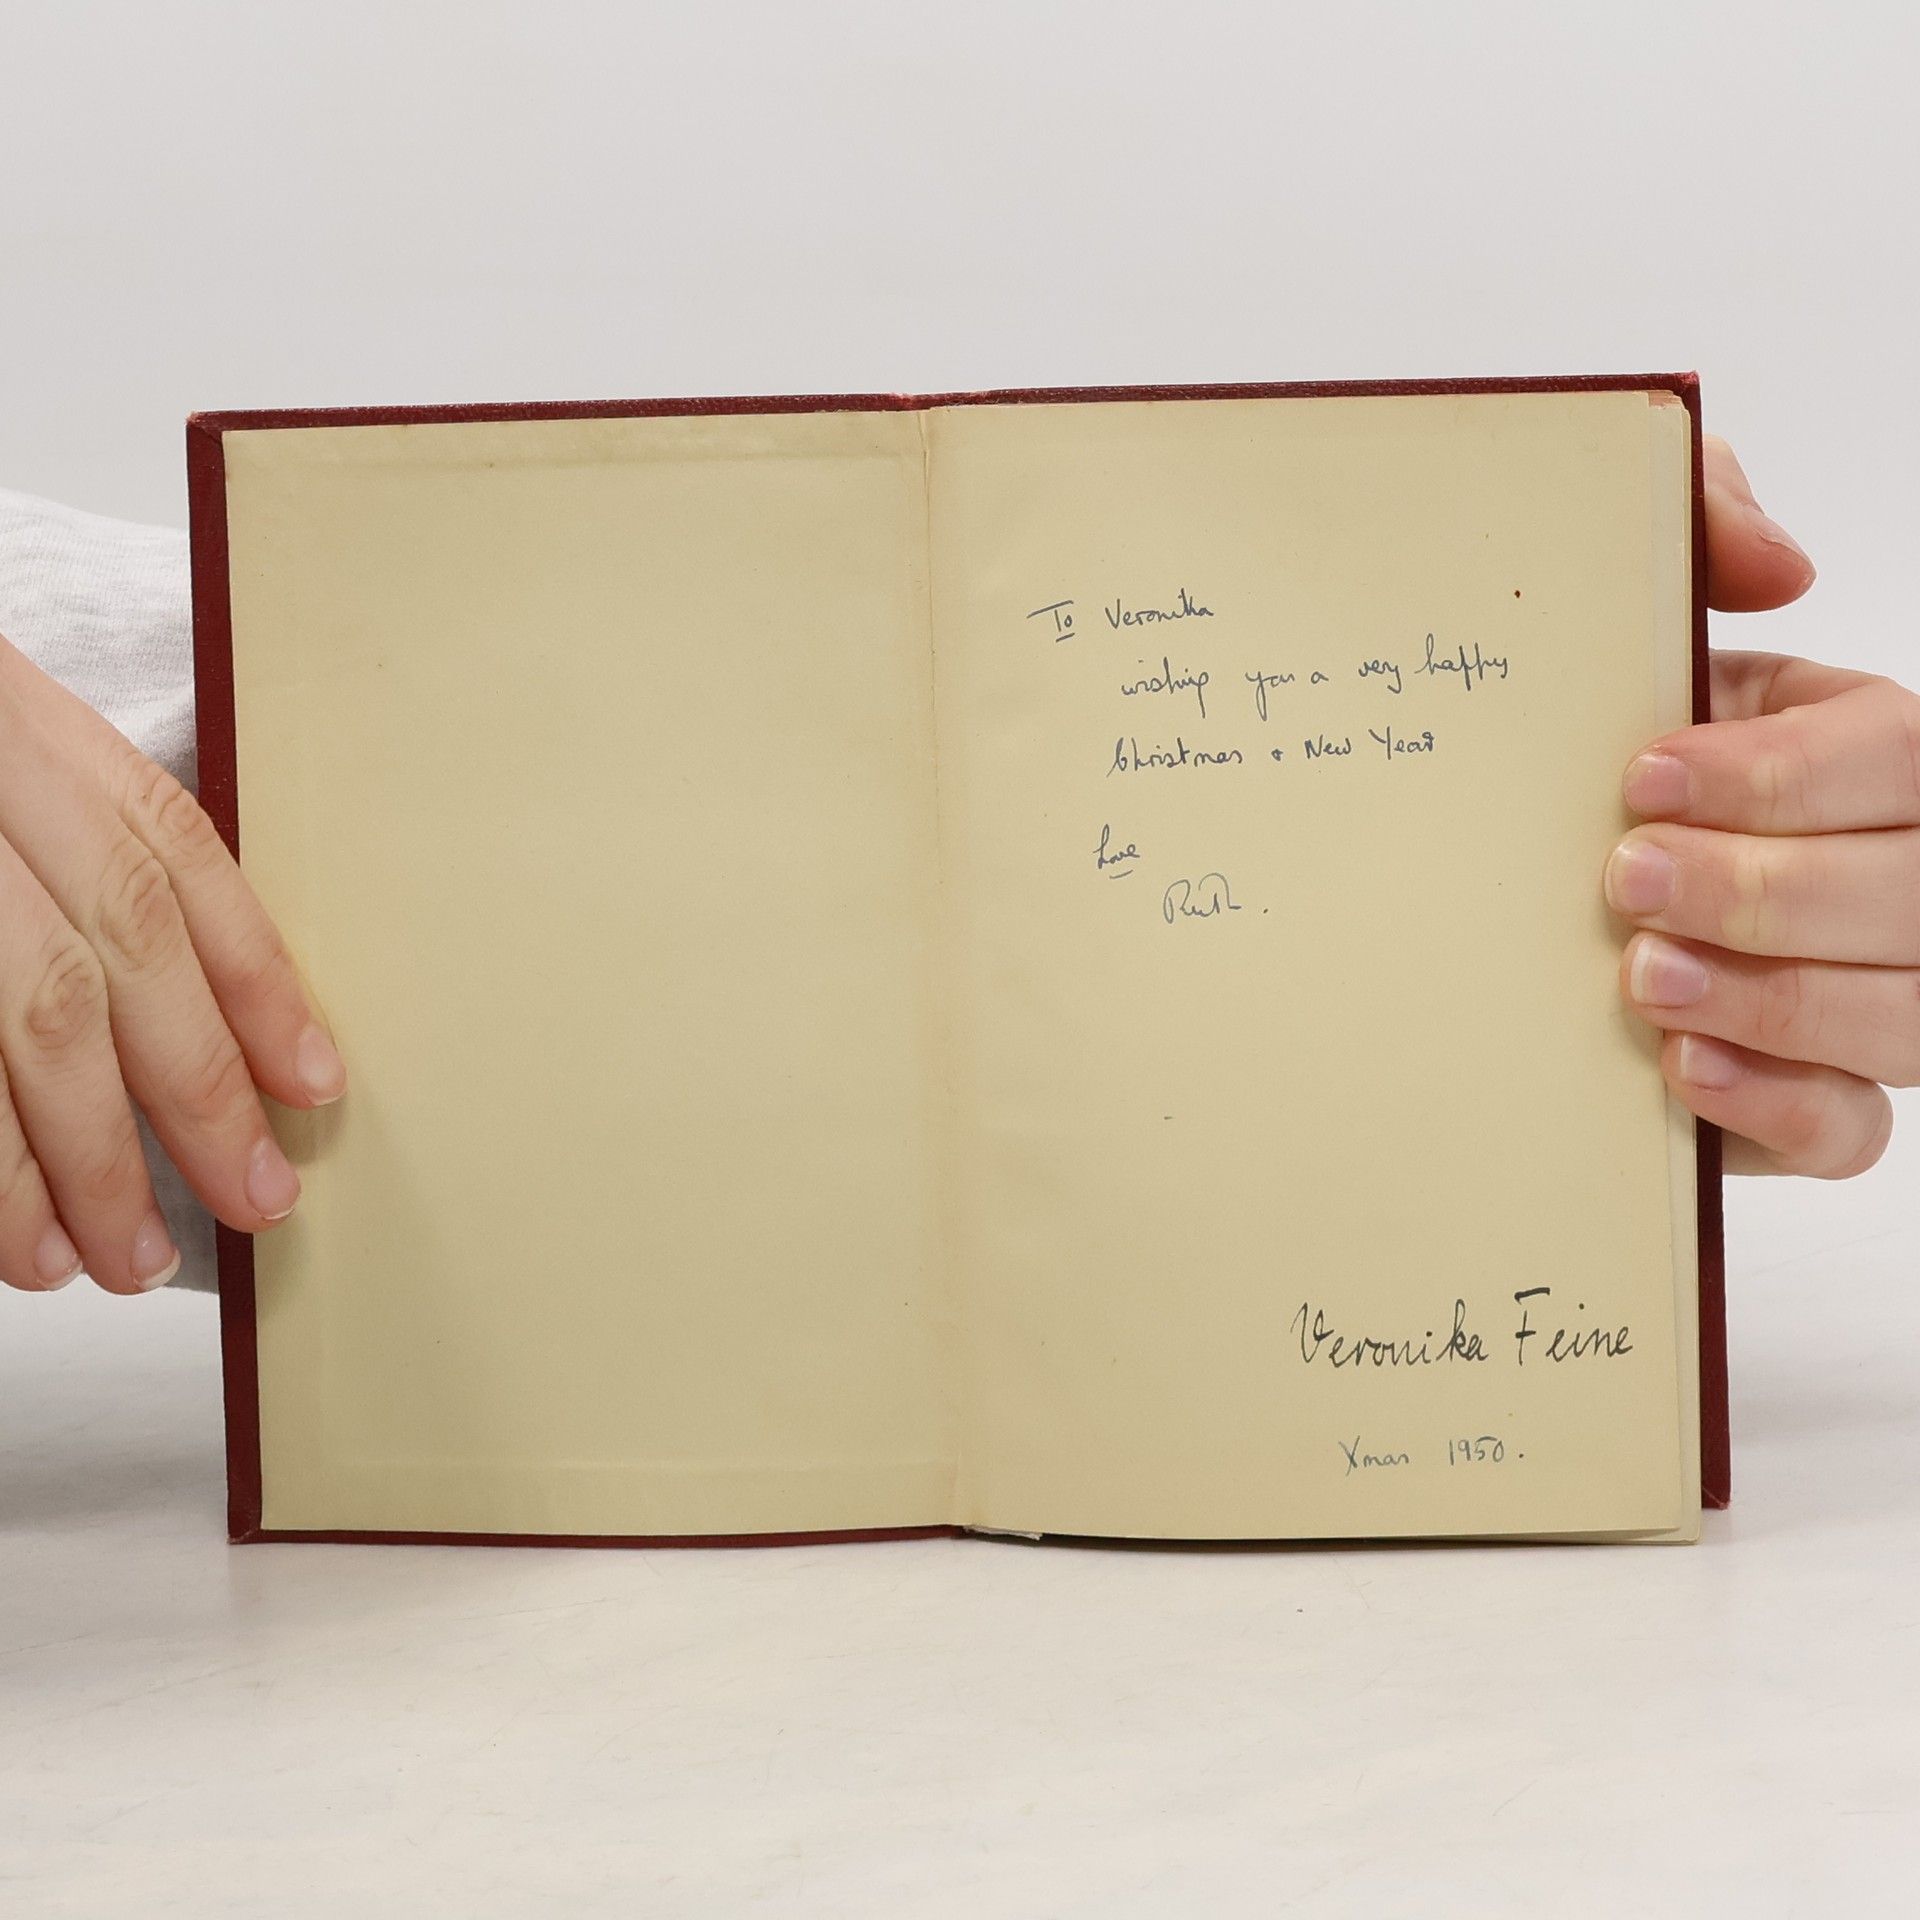 To Veronika
wishing you a very happy
Christmas & New Year
Love
Ruth.
Veronika Feine
Xmas 1950.